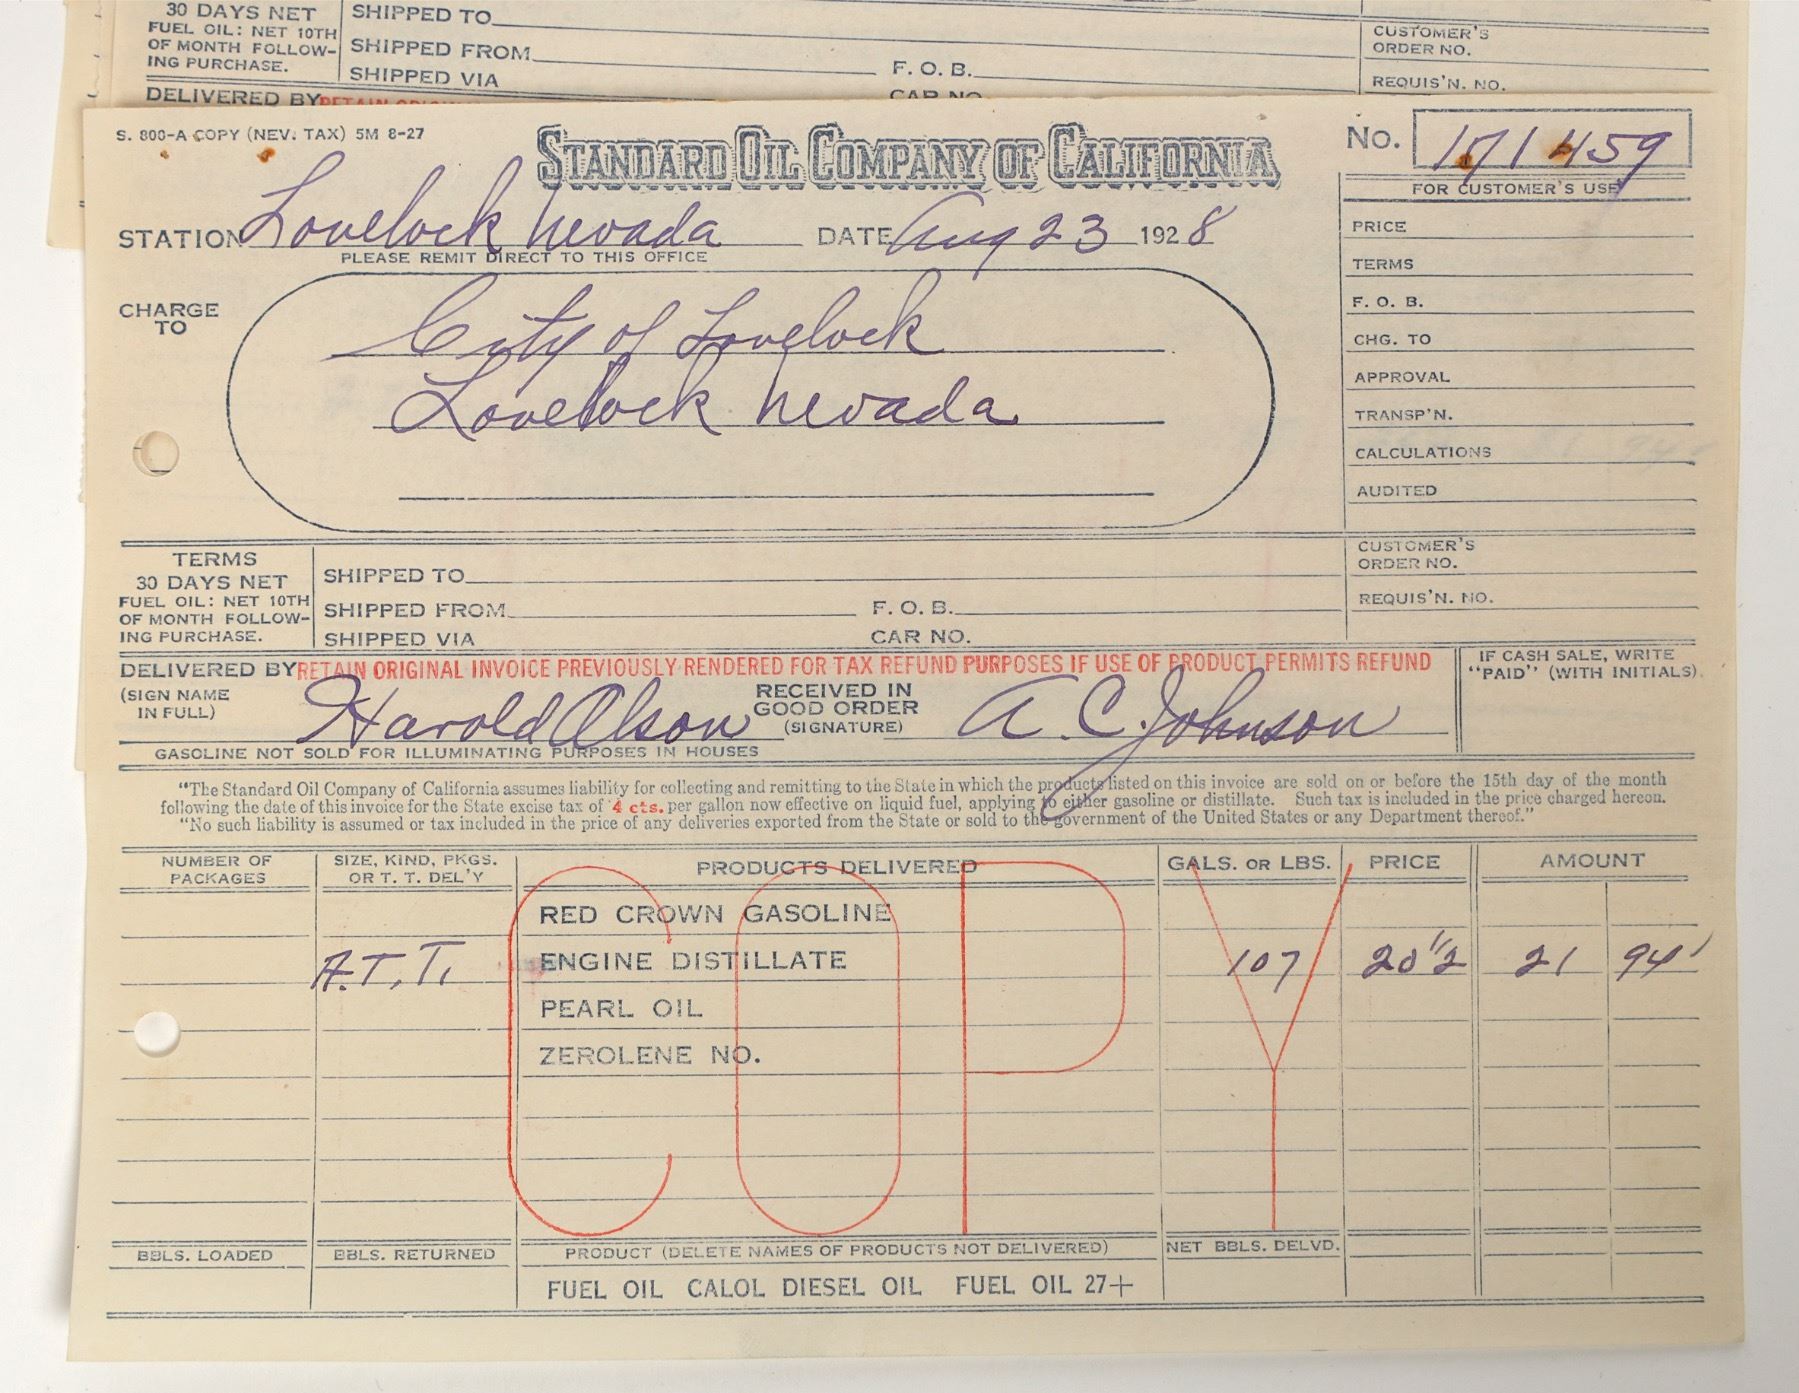 30 DAYS NET
FUEL OIL: NET 10TH
OF MONTH FOLLOW-
ING PURCHASE.
SHIPPED TO
SHIPPED FROM
SHIPPED VIA
F. O. B.
CAR NO.
CUSTOMER'S
ORDER NO.
REQUIS'N. NO.
DELIVERED BY RETAIN ORIGINAL
S. 800-A COPY (NEV. TAX) 5M 8-27
STANDARD OIL COMPANY OF CALIFORNIA
NO. 171459
FOR CUSTOMER'S USE
STATION Lovelock Nevada DATE Aug 23 1928
PLEASE REMIT DIRECT TO THIS OFFICE
CHARGE
TO
City of Lovelock
Lovelock Nevada
PRICE
TERMS
F. O. B.
CHG. TO
APPROVAL
TRANSP'N.
CALCULATIONS
AUDITED
TERMS
30 DAYS NET
FUEL OIL: NET 10TH
OF MONTH FOLLOW-
ING PURCHASE.
SHIPPED TO
SHIPPED FROM F. O. B.
SHIPPED VIA CAR NO.
CUSTOMER'S
ORDER NO.
REQUIS'N. NO.
DELIVERED BY RETAIN ORIGINAL INVOICE PREVIOUSLY RENDERED FOR TAX REFUND PURPOSES IF USE OF PRODUCT PERMITS REFUND
(SIGN NAME
IN FULL)
Harold Olson
RECEIVED IN
GOOD ORDER
(SIGNATURE)
A. C. Johnson
IF CASH SALE, WRITE
"PAID" (WITH INITIALS)
GASOLINE NOT SOLD FOR ILLUMINATING PURPOSES IN HOUSES
"The Standard Oil Company of California assumes liability for collecting and remitting to the State in which the products listed on this invoice are sold on or before the 15th day of the month
following the date of this invoice for the State excise tax of 4 cts. per gallon now effective on liquid fuel, applying to either gasoline or distillate. Such tax is included in the price charged hereon.
"No such liability is assumed or tax included in the price of any deliveries exported from the State or sold to the government of the United States or any Department thereof."
NUMBER OF
PACKAGES
SIZE, KIND, PKGS.
OR T. T. DEL'Y
PRODUCTS DELIVERED
GALS. OR LBS.
PRICE
AMOUNT
COPY
RED CROWN GASOLINE
A.T.T. ENGINE DISTILLATE 107 20 1/2 21 94
PEARL OIL
ZEROLENE NO.
BBLS. LOADED BBLS. RETURNED PRODUCT (DELETE NAMES OF PRODUCTS NOT DELIVERED) NET BBLS. DELVD.
FUEL OIL CALOL DIESEL OIL FUEL OIL 27+